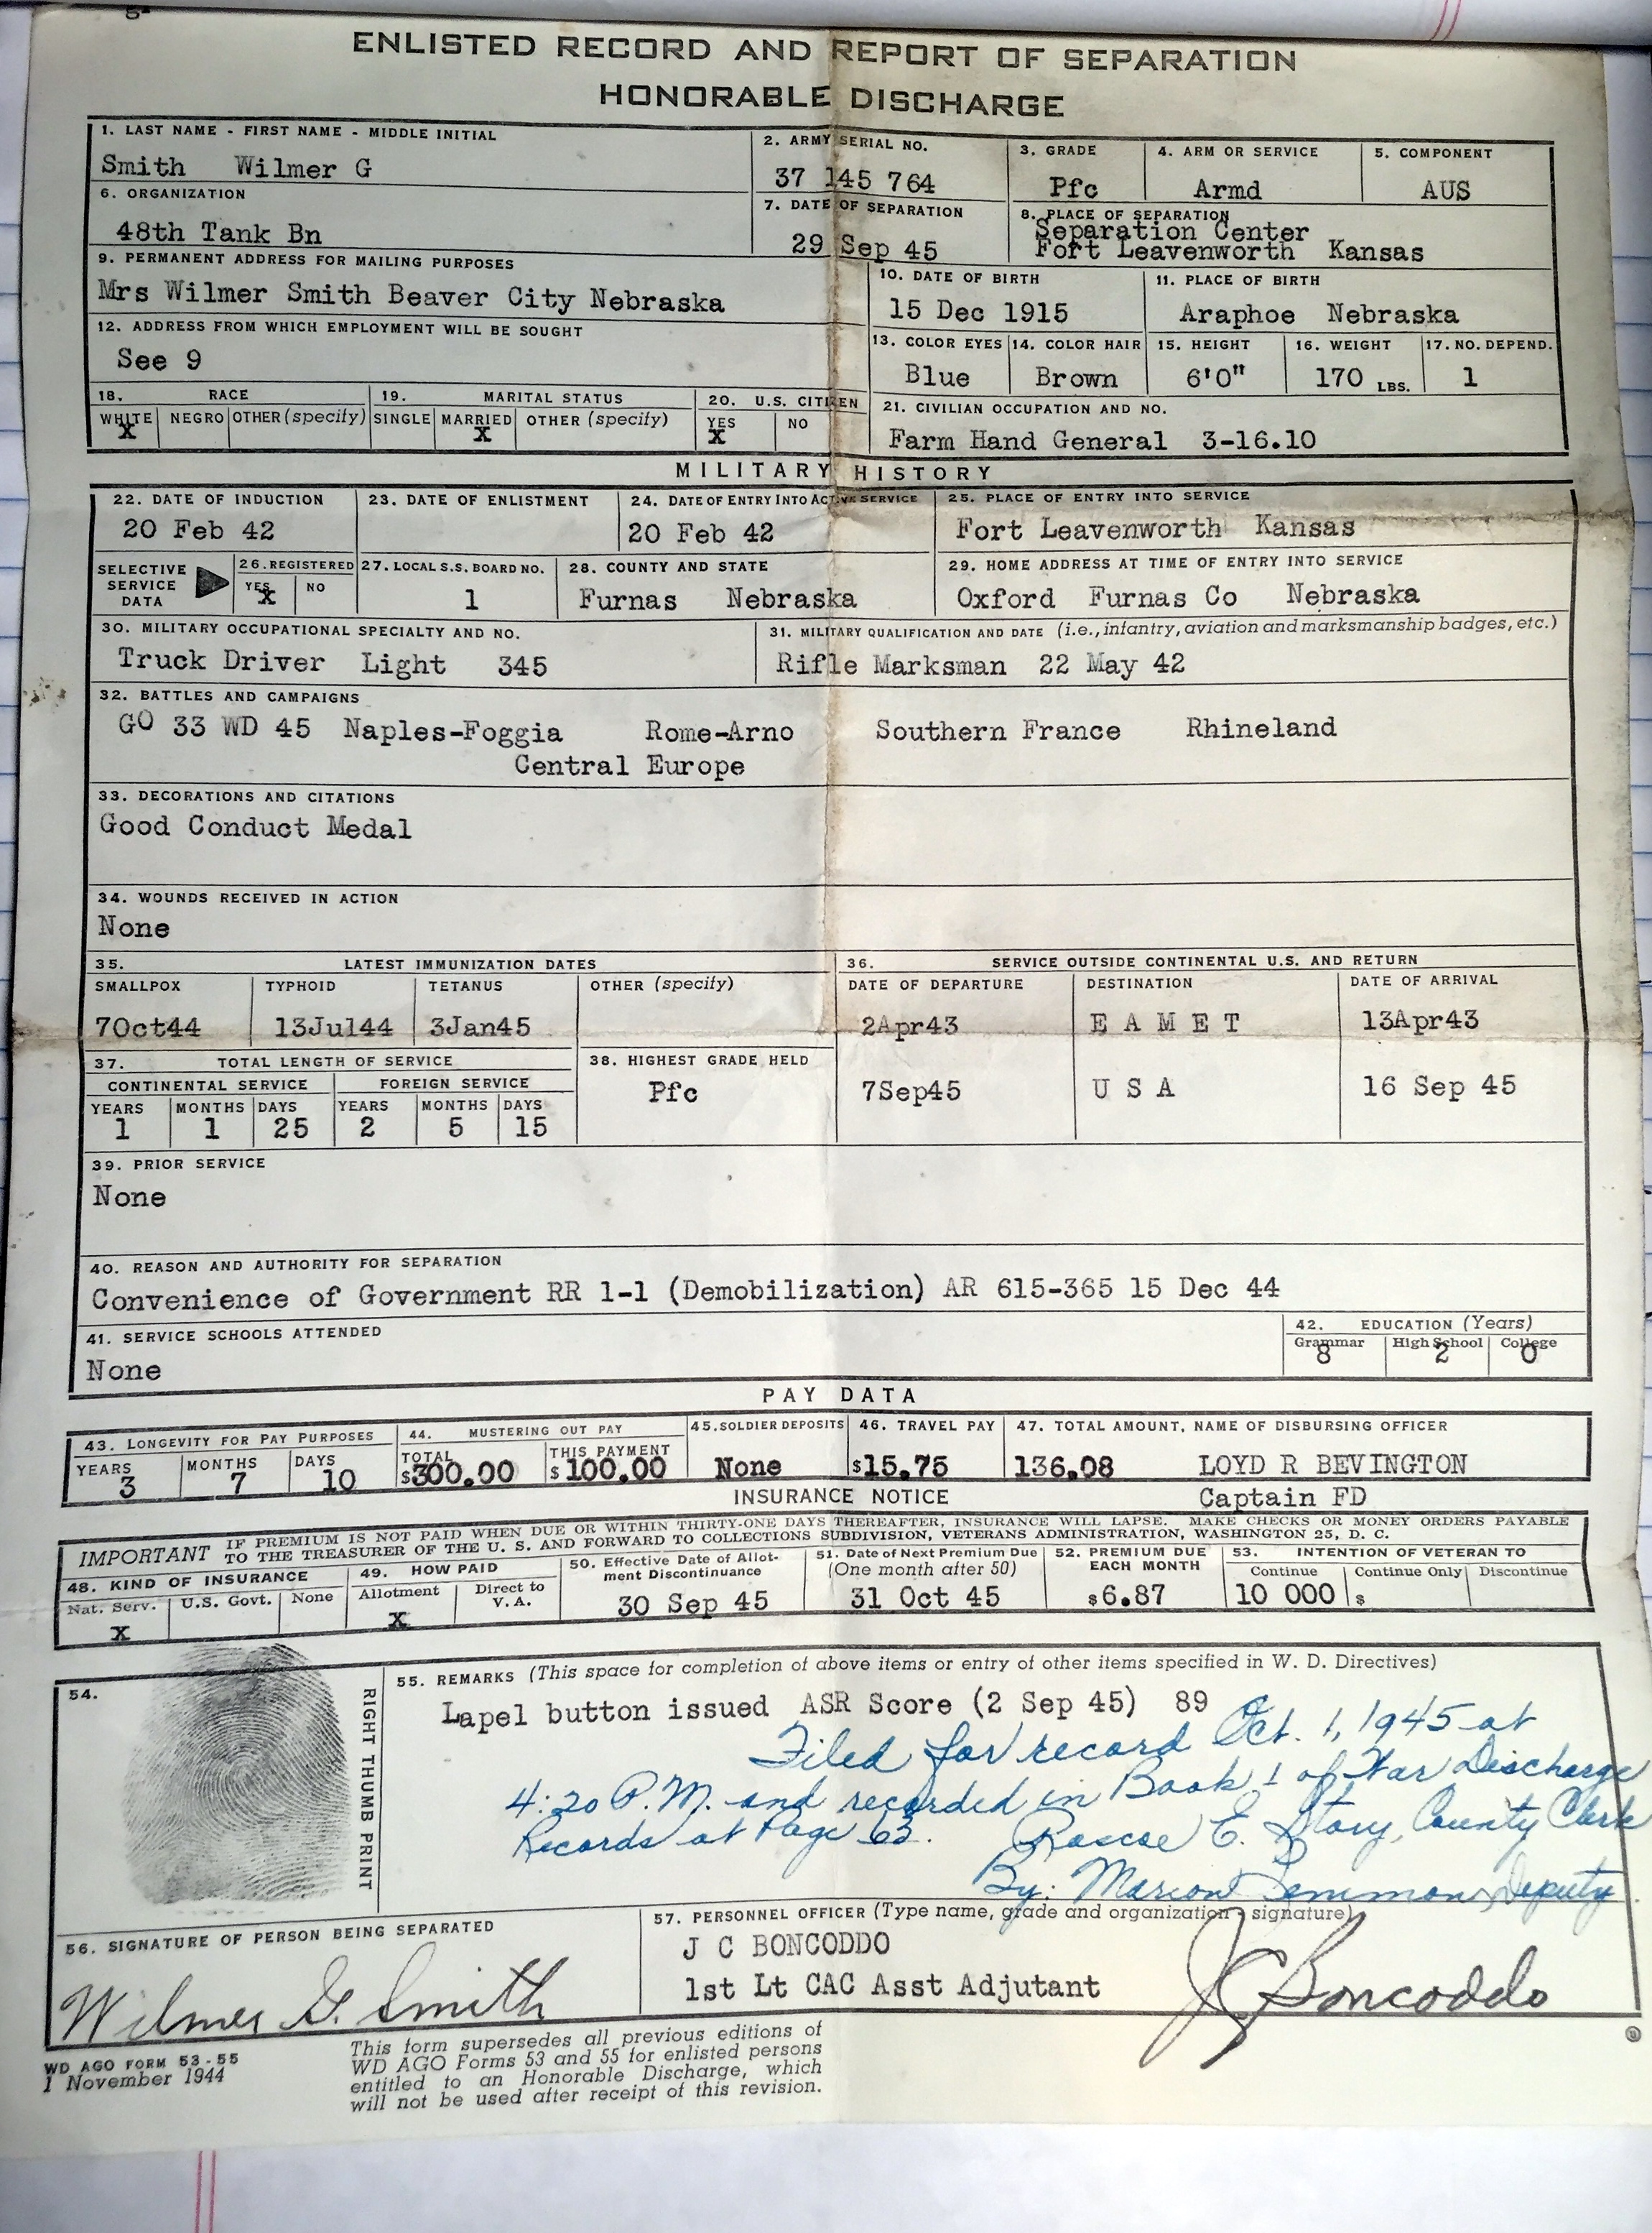 ENLISTED RECORD AND REPORT OF SEPARATION
HONORABLE DISCHARGE
1. LAST NAME - FIRST NAME - MIDDLE INITIAL
Smith Wilmer G
2. ARMY SERIAL NO.
37 145 764
3. GRADE
Pfc
4. ARM OR SERVICE
Armd
5. COMPONENT
AUS
6. ORGANIZATION
48th Tank Bn
7. DATE OF SEPARATION
29 Sep 45
8. PLACE OF SEPARATION
Separation Center
Fort Leavenworth Kansas
9. PERMANENT ADDRESS FOR MAILING PURPOSES
Mrs Wilmer Smith Beaver City Nebraska
10. DATE OF BIRTH
15 Dec 1915
11. PLACE OF BIRTH
Araphoe Nebraska
12. ADDRESS FROM WHICH EMPLOYMENT WILL BE SOUGHT
See 9
13. COLOR EYES
Blue
14. COLOR HAIR
Brown
15. HEIGHT
6'0"
16. WEIGHT
170 LBS.
17. NO. DEPEND.
1
18. RACE
WHITE NEGRO OTHER (specify)
X
19. MARITAL STATUS
SINGLE MARRIED OTHER (specify)
X
20. U.S. CITIZEN
YES NO
X
21. CIVILIAN OCCUPATION AND NO.
Farm Hand General 3-16.10
MILITARY HISTORY
22. DATE OF INDUCTION
20 Feb 42
23. DATE OF ENLISTMENT
24. DATE OF ENTRY INTO ACTIVE SERVICE
20 Feb 42
25. PLACE OF ENTRY INTO SERVICE
Fort Leavenworth Kansas
SELECTIVE
SERVICE
DATA
26. REGISTERED
YES NO
X
27. LOCAL S.S. BOARD NO.
1
28. COUNTY AND STATE
Furnas Nebraska
29. HOME ADDRESS AT TIME OF ENTRY INTO SERVICE
Oxford Furnas Co Nebraska
30. MILITARY OCCUPATIONAL SPECIALTY AND NO.
Truck Driver Light 345
31. MILITARY QUALIFICATION AND DATE (i.e., infantry, aviation and marksmanship badges, etc.)
Rifle Marksman 22 May 42
32. BATTLES AND CAMPAIGNS
GO 33 WD 45 Naples-Foggia Rome-Arno Southern France Rhineland
Central Europe
33. DECORATIONS AND CITATIONS
Good Conduct Medal
34. WOUNDS RECEIVED IN ACTION
None
35. LATEST IMMUNIZATION DATES
SMALLPOX TYPHOID TETANUS OTHER (specify)
7Oct44 13Jul44 3Jan45
36. SERVICE OUTSIDE CONTINENTAL U.S. AND RETURN
DATE OF DEPARTURE DESTINATION DATE OF ARRIVAL
2Apr43 E A M E T 13Apr43
7Sep45 U S A 16 Sep 45
37. TOTAL LENGTH OF SERVICE
CONTINENTAL SERVICE FOREIGN SERVICE
YEARS MONTHS DAYS YEARS MONTHS DAYS
1 1 25 2 5 15
38. HIGHEST GRADE HELD
Pfc
39. PRIOR SERVICE
None
40. REASON AND AUTHORITY FOR SEPARATION
Convenience of Government RR 1-1 (Demobilization) AR 615-365 15 Dec 44
41. SERVICE SCHOOLS ATTENDED
None
42. EDUCATION (Years)
Grammar High School College
8 2 0
PAY DATA
43. LONGEVITY FOR PAY PURPOSES
YEARS MONTHS DAYS
3 7 10
44. MUSTERING OUT PAY
TOTAL THIS PAYMENT
$300.00 $100.00
45. SOLDIER DEPOSITS
None
46. TRAVEL PAY
$15.75
47. TOTAL AMOUNT, NAME OF DISBURSING OFFICER
136.08 LOYD R BEVINGTON
Captain FD
INSURANCE NOTICE
IMPORTANT
IF PREMIUM IS NOT PAID WHEN DUE OR WITHIN THIRTY-ONE DAYS THEREAFTER, INSURANCE WILL LAPSE. MAKE CHECKS OR MONEY ORDERS PAYABLE
TO THE TREASURER OF THE U. S. AND FORWARD TO COLLECTIONS SUBDIVISION, VETERANS ADMINISTRATION, WASHINGTON 25, D. C.
48. KIND OF INSURANCE
Nat. Serv. U.S. Govt. None
X
49. HOW PAID
Allotment Direct to
V. A.
X
50. Effective Date of Allot-
ment Discontinuance
30 Sep 45
51. Date of Next Premium Due
(One month after 50)
31 Oct 45
52. PREMIUM DUE
EACH MONTH
$6.87
53. INTENTION OF VETERAN TO
Continue Continue Only Discontinue
10 000 $
54.
RIGHT THUMB PRINT
55. REMARKS (This space for completion of above items or entry of other items specified in W. D. Directives)
Lapel button issued ASR Score (2 Sep 45) 89
Filed for record Oct. 1, 1945 at
4:20 P.M. and recorded in Book 1 of War Discharge
Records at Page 63.
Roscoe E. Story, County Clerk
By: Marion Deputy
56. SIGNATURE OF PERSON BEING SEPARATED
Wilmer G. Smith
57. PERSONNEL OFFICER (Type name, grade and organization - signature)
J C BONCODDO
1st Lt CAC Asst Adjutant
J C Boncoddo
WD AGO FORM 53-55
1 November 1944
This form supersedes all previous editions of
WD AGO Forms 53 and 55 for enlisted persons
entitled to an Honorable Discharge, which
will not be used after receipt of this revision.